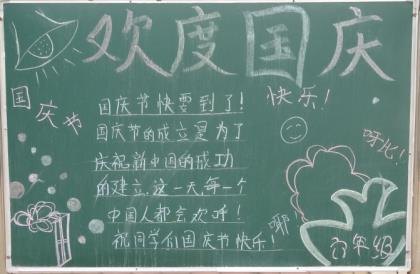 欢度国庆
国庆节
快乐！
呀比！
国庆节快要到了！
国庆节的成立是为了
庆祝新中国的成功
的建立.这一天,每一个
中国人都会欢呼！
祝同学们国庆节快乐！
耶
六年级